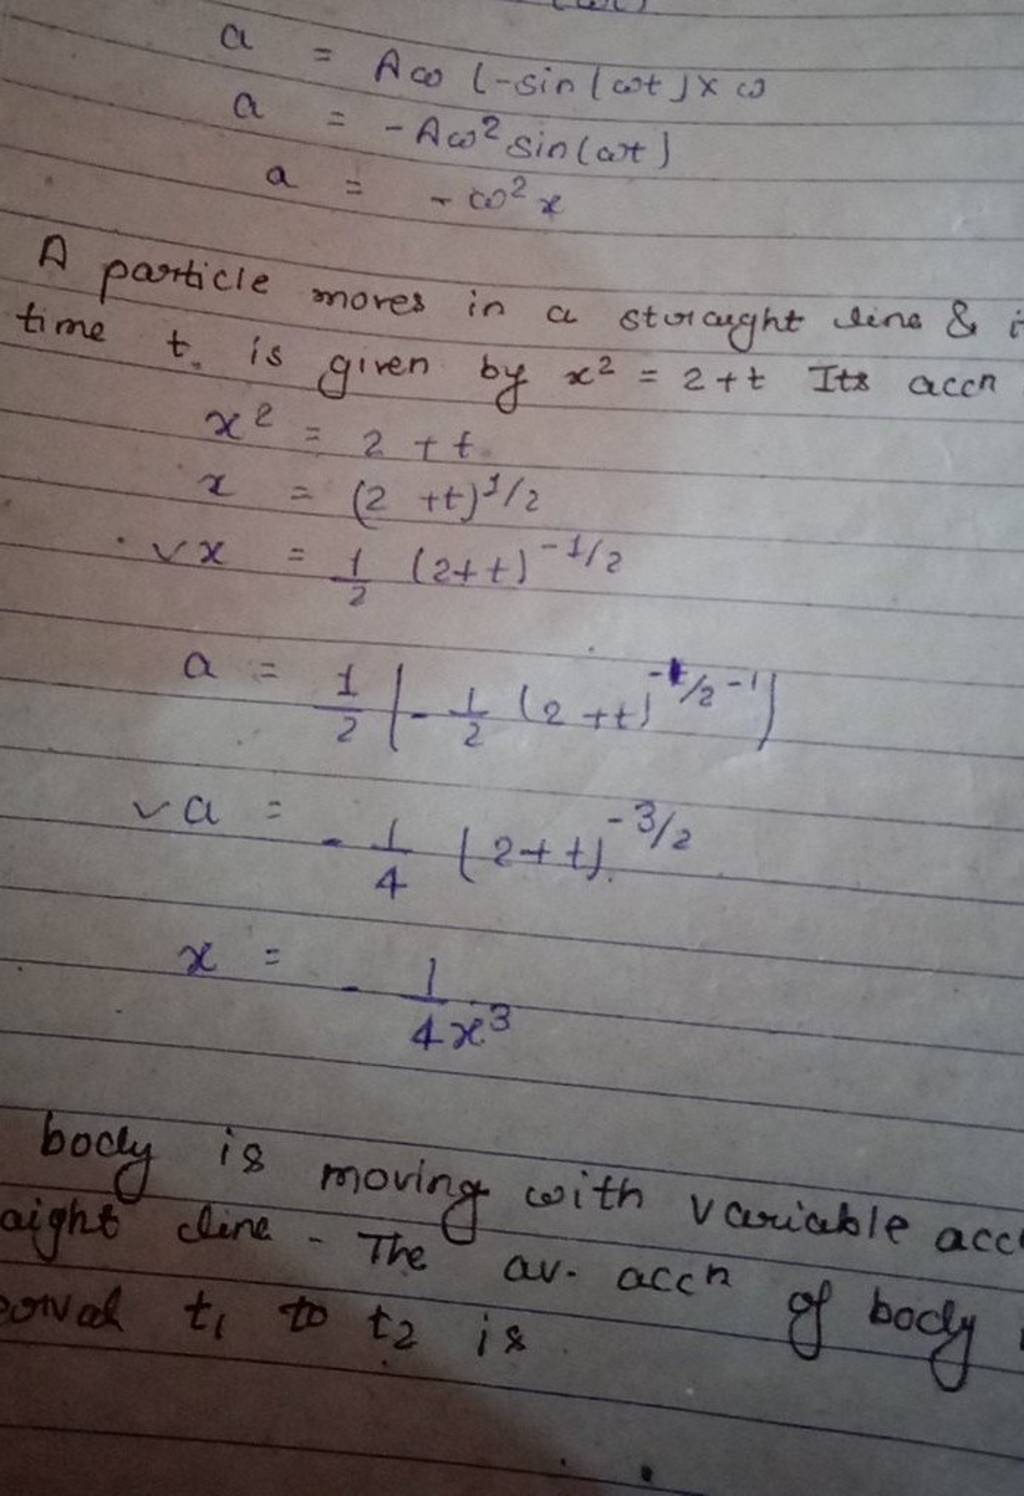 a = Aω (-sin(ωt) × ω
a = -Aω² sin(ωt)
a = -ω² x
A particle moves in a straught line &
time t. is given by x² = 2+t Its accn
x² = 2 + t
x = (2 +t)^1/2
vx = 1/2 (2+t)^-1/2
a = 1/2 (-1/2 (2+t)^-1/2-1)
va = -1/4 (2+t)^-3/2
x = -1/4x³
body is moving with variable acc
aight line - The av. accn of body
t₁ to t₂ is